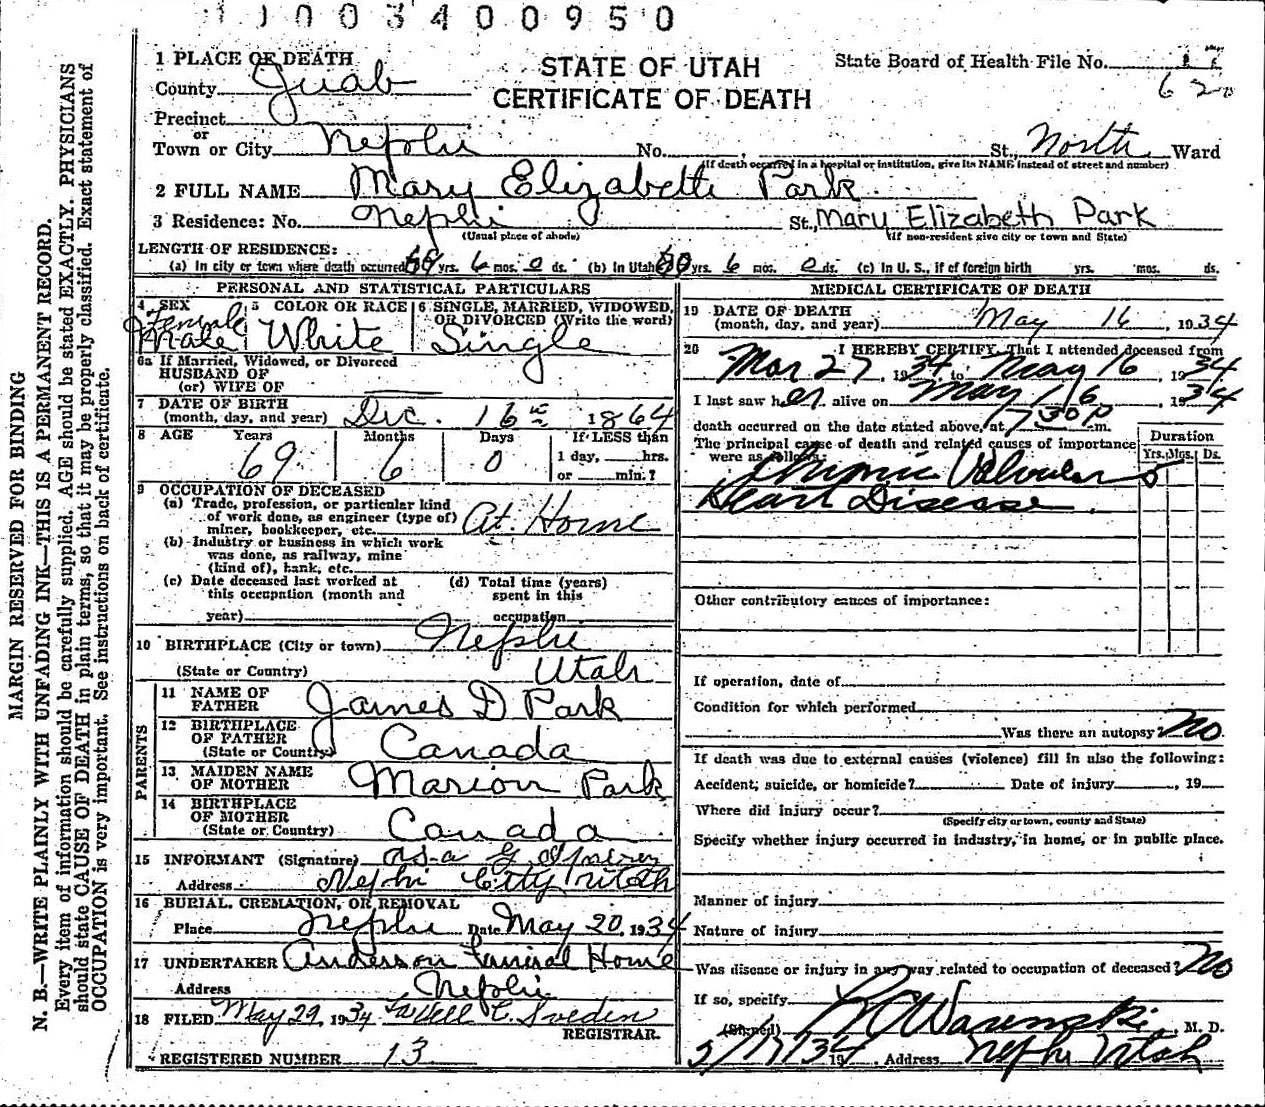 1003400950
MARGIN RESERVED FOR BINDING
N. B.—WRITE PLAINLY WITH UNFADING INK—THIS IS A PERMANENT RECORD.
Every item of information should be carefully supplied. AGE should be stated EXACTLY. PHYSICIANS
should state CAUSE OF DEATH in plain terms, so that it may be properly classified. Exact statement of
OCCUPATION is very important. See instructions on back of certificate.
STATE OF UTAH
CERTIFICATE OF DEATH
State Board of Health File No. 17
620
1 PLACE OF DEATH
County Juab
Precinct
or
Town or City Nephi No. , St., North Ward
(If death occurred in a hospital or institution, give its NAME instead of street and number)
2 FULL NAME Mary Elizabeth Park
3 Residence: No. Nephi St., Mary Elizabeth Park
(Usual place of abode) (If non-resident give city or town and State)
LENGTH OF RESIDENCE:
(a) In city or town where death occurred 69 yrs. 6 mos. 0 ds. (b) In Utah yrs. 6 mos. 0 ds. (c) In U. S., if of foreign birth yrs. mos. ds.
PERSONAL AND STATISTICAL PARTICULARS
4 SEX Female Male
5 COLOR OR RACE White
6 SINGLE, MARRIED, WIDOWED, OR DIVORCED (Write the word) Single
6a If Married, Widowed, or Divorced
HUSBAND OF
(or) WIFE OF
7 DATE OF BIRTH
(month, day, and year) Dec. 16th 1864
8 AGE Years 69 Months 6 Days 0 If LESS than
1 day, hrs.
or min.?
9 OCCUPATION OF DECEASED
(a) Trade, profession, or particular kind
of work done, as engineer (type of)
miner, bookkeeper, etc. At Home
(b) Industry or business in which work
was done, as railway, mine
(kind of), bank, etc.
(c) Date deceased last worked at
this occupation (month and
year)
(d) Total time (years)
spent in this
occupation
10 BIRTHPLACE (City or town) Nephi
(State or Country) Utah
PARENTS
11 NAME OF
FATHER James D Park
12 BIRTHPLACE
OF FATHER
(State or Country) Canada
13 MAIDEN NAME
OF MOTHER Marion Park
14 BIRTHPLACE
OF MOTHER
(State or Country) Canada
15 INFORMANT (Signature)
Address Nephi City Utah
16 BURIAL, CREMATION, OR REMOVAL
Place Nephi Date May 20, 1934
17 UNDERTAKER Anderson Funeral Home
Address Nephi
18 FILED May 29, 1934 E. Sweden
REGISTRAR.
REGISTERED NUMBER 13
MEDICAL CERTIFICATE OF DEATH
19 DATE OF DEATH
(month, day, and year) May 16, 1934
20 I HEREBY CERTIFY, That I attended deceased from
Mar 27, 1934, to May 16, 1934
I last saw her alive on May 16, 1934
death occurred on the date stated above, at 7 30 P m.
The principal cause of death and related causes of importance
were as follows:
Duration
Yrs. Mos. Ds.
Chronic Valvular 5
Heart Disease
Other contributory causes of importance:
If operation, date of
Condition for which performed
Was there an autopsy? No
If death was due to external causes (violence) fill in also the following:
Accident, suicide, or homicide? Date of injury , 19
Where did injury occur?
(Specify city or town, county and State)
Specify whether injury occurred in industry, in home, or in public place.
Manner of injury
Nature of injury
Was disease or injury in any way related to occupation of deceased? No
If so, specify
(Signed) Warenski, M. D.
5/17/34 19 , Address Nephi Utah